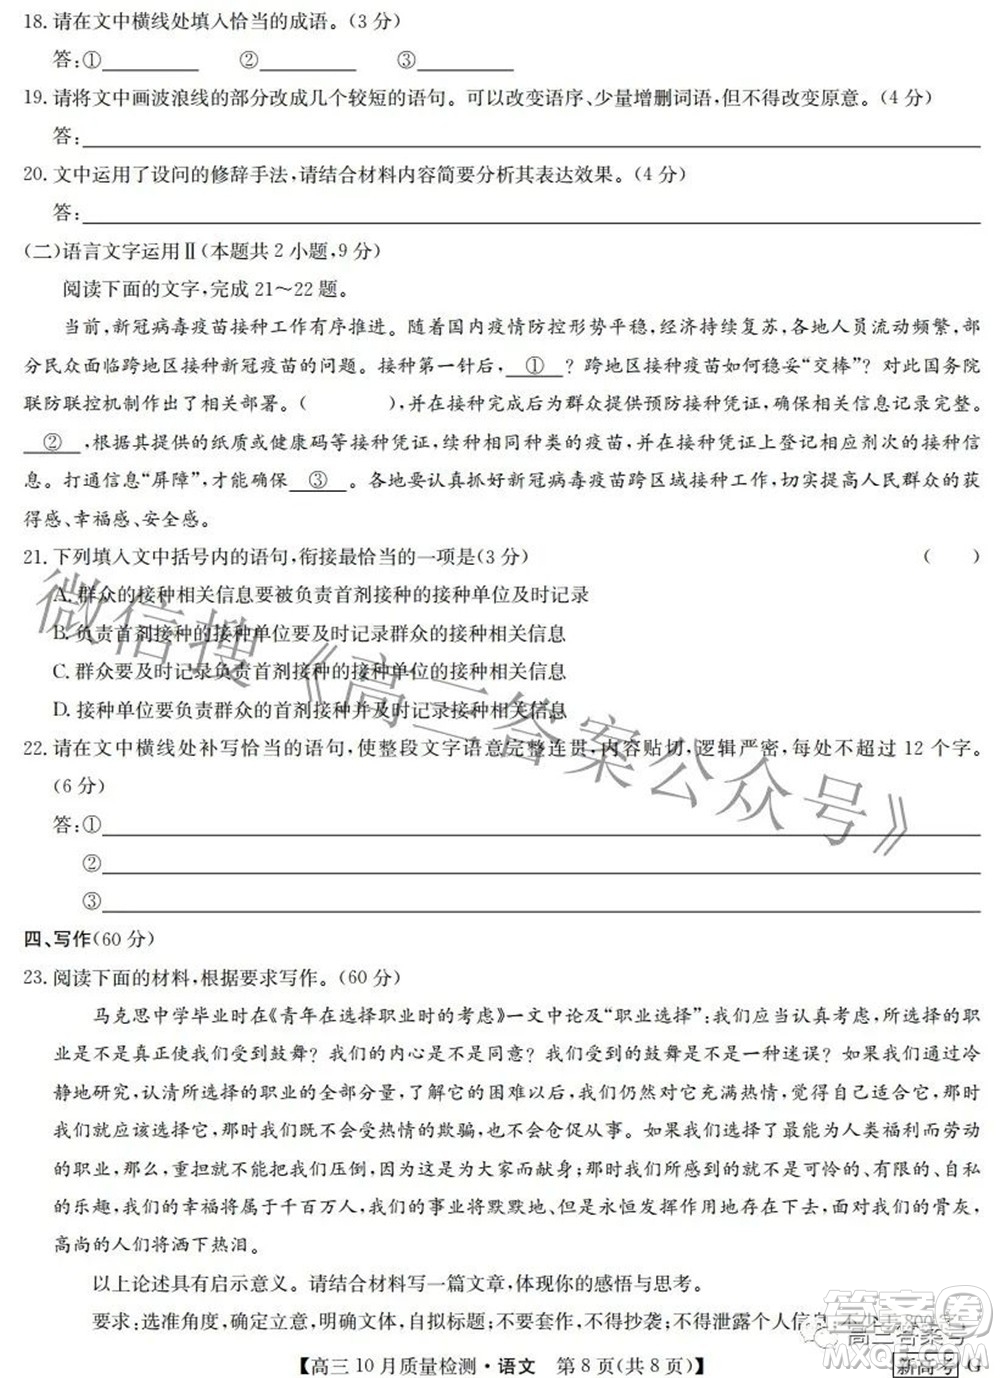 18. 请在文中横线处填入恰当的成语。(3 分)
答:①________ ②________ ③________
19. 请将文中画波浪线的部分改成几个较短的语句。可以改变语序、少量增删词语,但不得改变原意。(4 分)
答:________
20. 文中运用了设问的修辞手法,请结合材料内容简要分析其表达效果。(4 分)
答:________
(二)语言文字运用Ⅱ(本题共 2 小题,9 分)
阅读下面的文字,完成 21～22 题。
当前,新冠病毒疫苗接种工作有序推进。随着国内疫情防控形势平稳,经济持续复苏,各地人员流动频繁,部
分民众面临跨地区接种新冠疫苗的问题。接种第一针后, ① ? 跨地区接种疫苗如何稳妥“交棒”? 对此国务院
联防联控机制作出了相关部署。(　　　　),并在接种完成后为群众提供预防接种凭证,确保相关信息记录完整。
② ,根据其提供的纸质或健康码等接种凭证,续种相同种类的疫苗,并在接种凭证上登记相应剂次的接种信
息。打通信息“屏障”,才能确保 ③ 。各地要认真抓好新冠病毒疫苗跨区域接种工作,切实提高人民群众的获
得感、幸福感、安全感。
21. 下列填入文中括号内的语句,衔接最恰当的一项是(3 分) (　　)
A. 群众的接种相关信息要被负责首剂接种的接种单位及时记录
B. 负责首剂接种的接种单位要及时记录群众的接种相关信息
C. 群众要及时记录负责首剂接种的接种单位的接种相关信息
D. 接种单位要负责群众的首剂接种并及时记录接种相关信息
22. 请在文中横线处补写恰当的语句,使整段文字语意完整连贯,内容贴切,逻辑严密,每处不超过 12 个字。
(6 分)
答:①________
②________
③________
四、写作(60 分)
23. 阅读下面的材料,根据要求写作。(60 分)
马克思中学毕业时在《青年在选择职业时的考虑》一文中论及“职业选择”:我们应当认真考虑,所选择的职
业是不是真正使我们受到鼓舞? 我们的内心是不是同意? 我们受到的鼓舞是不是一种迷误? 如果我们通过冷
静地研究,认清所选择的职业的全部分量,了解它的困难以后,我们仍然对它充满热情,觉得自己适合它,那时
我们就应该选择它,那时我们既不会受热情的欺骗,也不会仓促从事。如果我们选择了最能为人类福利而劳动
的职业,那么,重担就不能把我们压倒,因为这是为大家而献身;那时我们所感到的就不是可怜的、有限的、自私
的乐趣,我们的幸福将属于千百万人,我们的事业将默默地、但是永恒发挥作用地存在下去,面对我们的骨灰,
高尚的人们将洒下热泪。
以上论述具有启示意义。请结合材料写一篇文章,体现你的感悟与思考。
要求:选准角度,确定立意,明确文体,自拟标题;不要套作,不得抄袭;不得泄露个人信息;不少于 800 字。
【高三 10 月质量检测·语文　第 8 页(共 8 页)】
新高考 G
微信搜《高三答案公众号》
高三答案号
答案圈